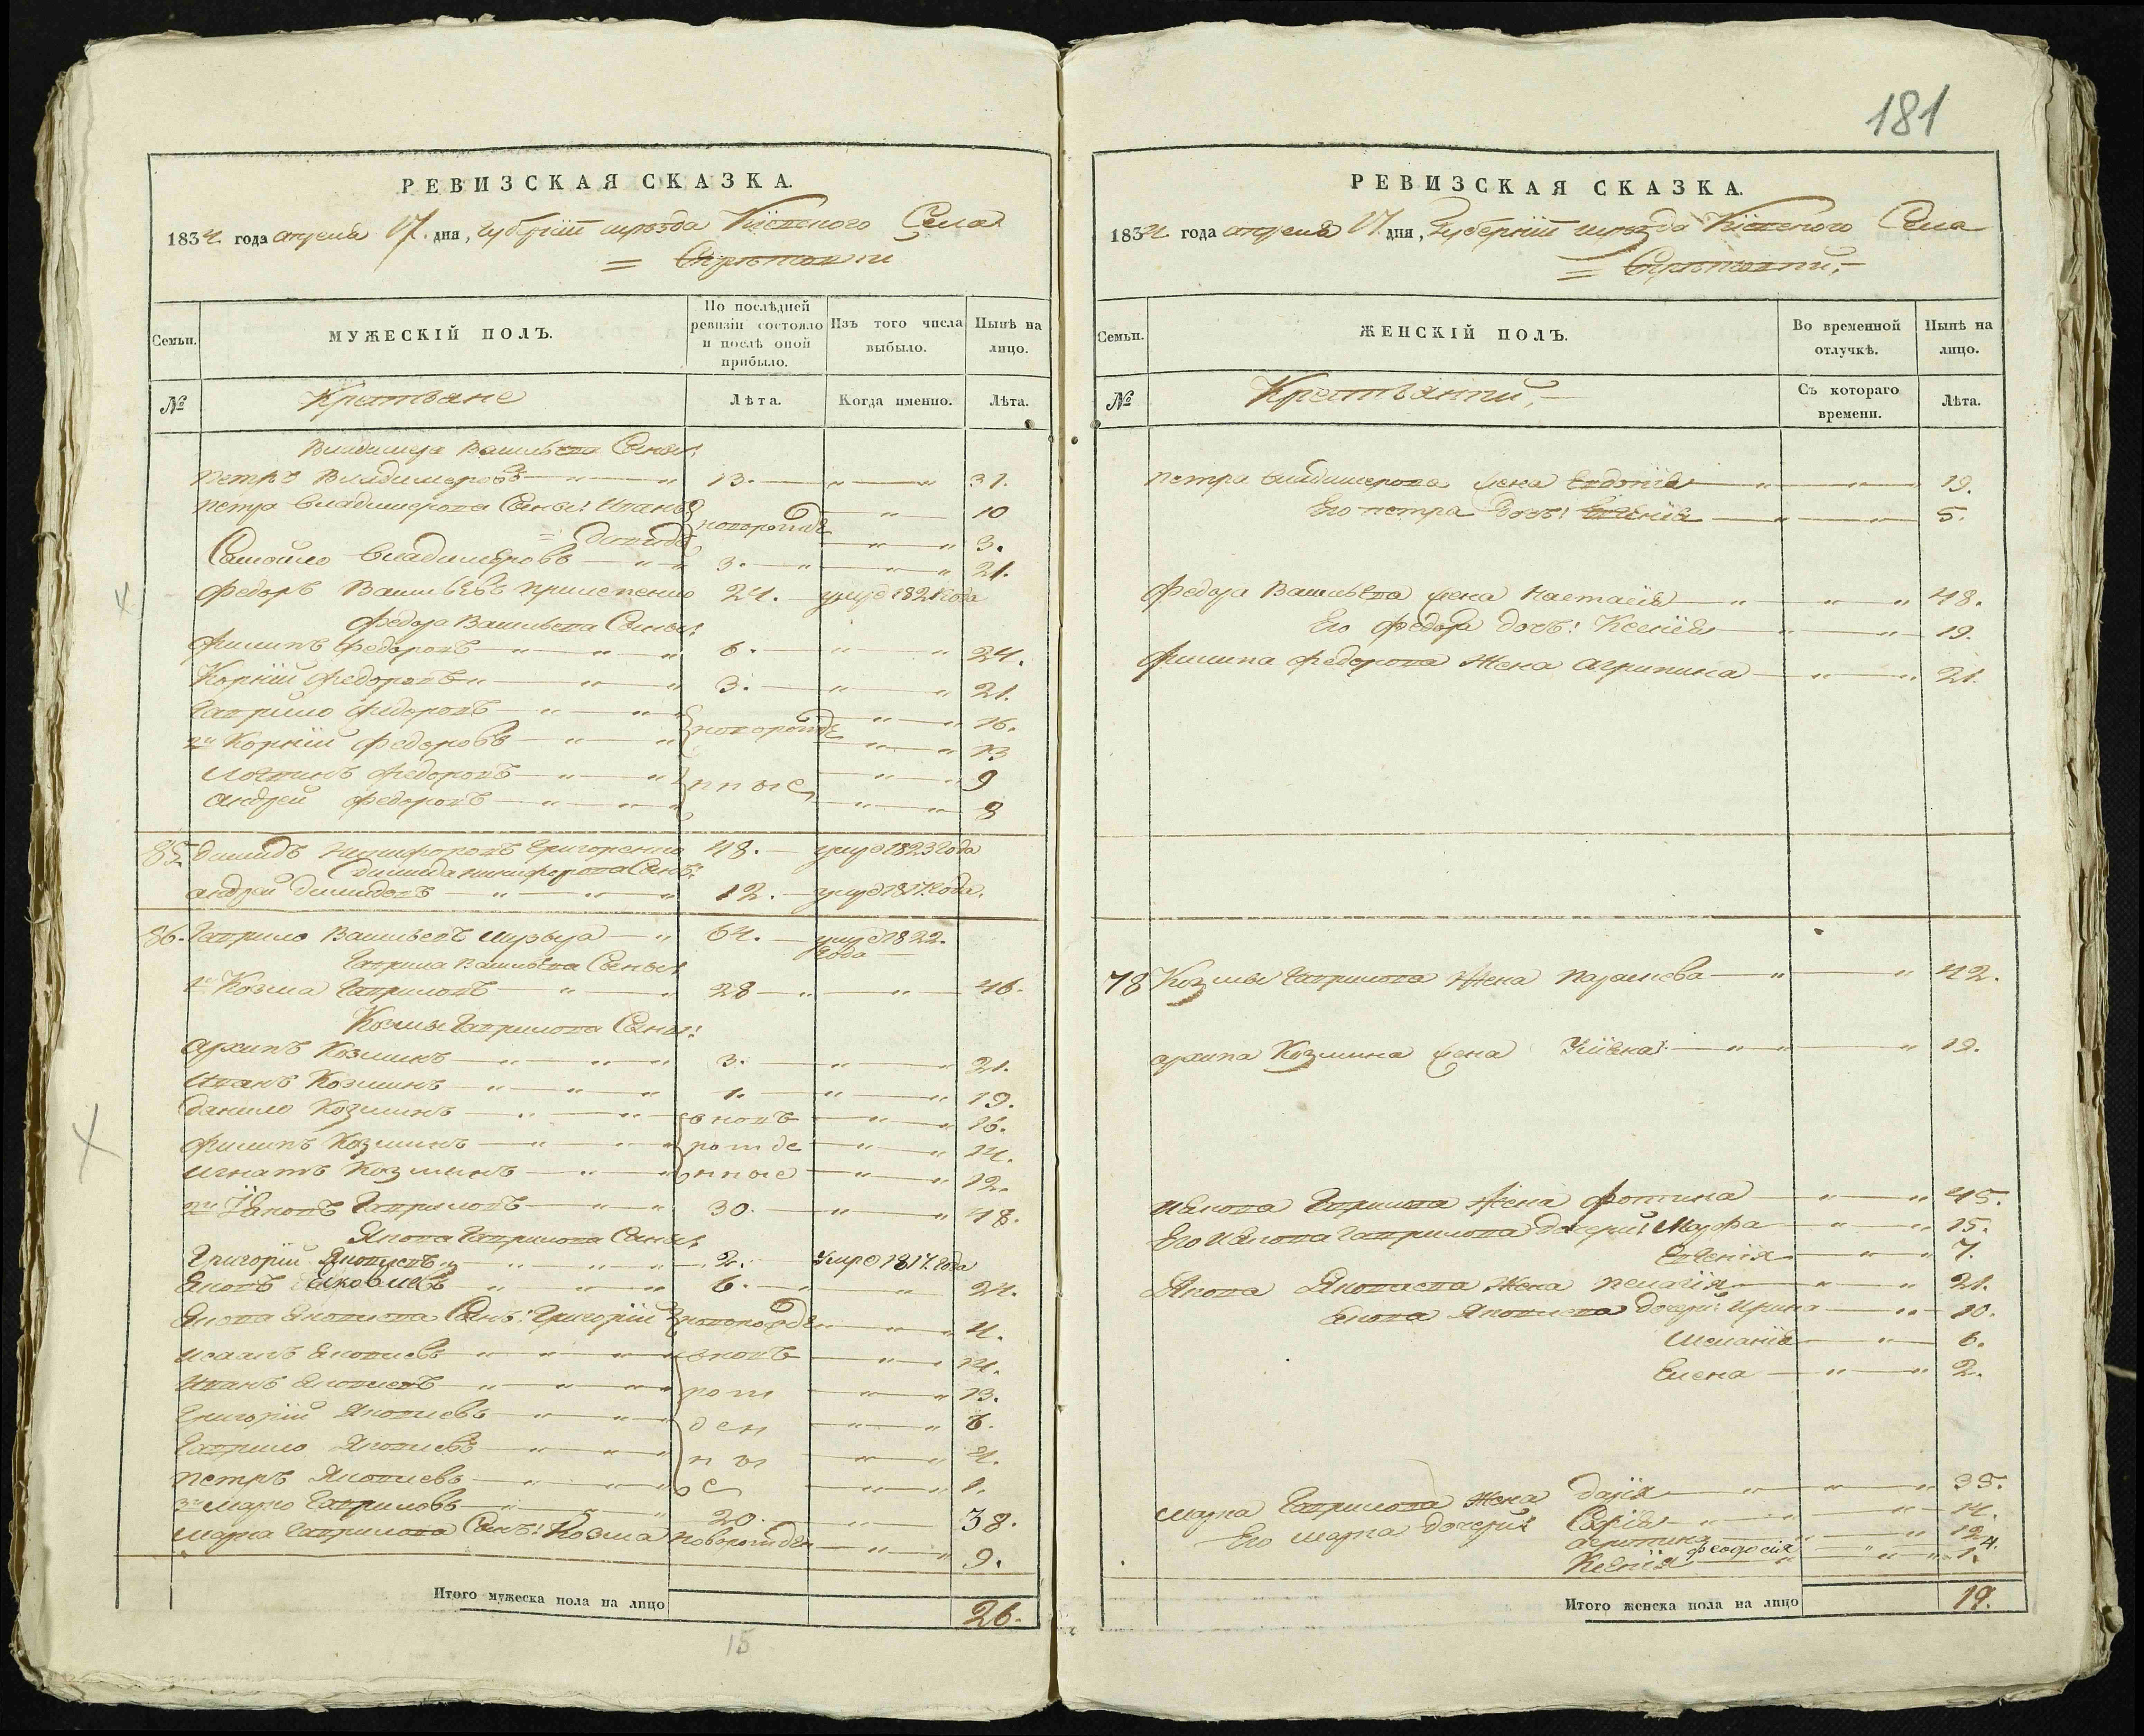 РЕВИЗСКАЯ СКАЗКА.
1834 года апреля 17. дня, губернии и уезда Киевского Села
=
Семьи.
МУЖЕСКІЙ ПОЛЪ.
По послѣдней ревизіи состояло и послѣ оной прибыло.
Изъ того числа выбыло.
Нынѣ на лицо.
№
Крестьяне
Лѣта.
Когда именно.
Лѣта.
Владимера Васильева Сыны:
Петръ Владимеровъ 13. 31.
Петра Владимерова Сыны: Иванъ новорожде 10
= Давидъ 3.
Самойло Владимеровъ 3. 21.
Федоръ Васильевъ 24. умре 1821 года
Федора Васильева Сыны:
Филипъ Федоровъ 6. 24.
Корній Федоровъ 3. 21.
Гаврило Федоровъ новорожде 16.
2й Корній Федоровъ 13
Логвинъ Федоровъ нные 9
Андрей Федоровъ 8
85. Димидъ Никифоровъ Григоренко 48. умре 1823 года
Димида Никифорова Сынъ:
Андрей Димидовъ 12. умре 1817 года.
86. Гаврило Васильевъ 64. умре 1822. года
Гаврила Васильева Сыны:
1й Козма Гавриловъ 28 46.
Козмы Гаврилова Сыны:
Архипъ Козминъ 3. 21.
Иванъ Козминъ 1. 19.
Данило Козминъ вновъ 16.
Филипъ Козминъ рожде 14.
Игнатъ Козминъ нные 12.
2й Яковъ Гавриловъ 30. 48.
Якова Гаврилова Сыны:
Григорій Яковлевъ 2. умре 1817 года
Яковъ Яковлевъ 6. 24.
Якова Яковлева Сынъ: Григорій новорожде 4.
Исаакъ Яковлевъ вновъ 14.
Иванъ Яковлевъ рож 13.
Григорій Яковлевъ ден 6.
Гаврило Яковлевъ ны 4.
Петръ Яковлевъ е 1.
3й Марко Гавриловъ 20. 38.
Марка Гаврилова Сынъ: Козма новорожден 9.
Итого мужеска пола на лицо 26.
15
181
РЕВИЗСКАЯ СКАЗКА.
1834 года апреля 17. дня, Губерніи и уезда Киевского Села
=
Семьи.
ЖЕНСКІЙ ПОЛЪ.
Во временной отлучкѣ.
Нынѣ на лицо.
№
Крестьянки,
Съ котораго времени.
Лѣта.
Петра Владимерова жена Евдокія 19.
Его Петра дочь: Евгенія 5.
Федора Васильева жена Настасія 48.
Его Федора дочь: Ксенія 19.
Филипа Федорова Жена Агрипина 21.
78 Козмы Гаврилова Жена Параскева 42.
Архипа Козмина жена 19.
Якова Гаврилова Жена Фотина 45.
Его Якова Гаврилова дочери: Марфа 15.
Евгенія 7.
Якова Яковлева Жена Пелагія 21.
Якова Яковлева дочери: Ирина 10.
Меланія 6.
Елена 2.
Марка Гаврилова Жена Дарія 35.
Его Марка дочери: Софія 14.
12
Феодосія 4.
Ксенія 1.
Итого женска пола на лицо 19.